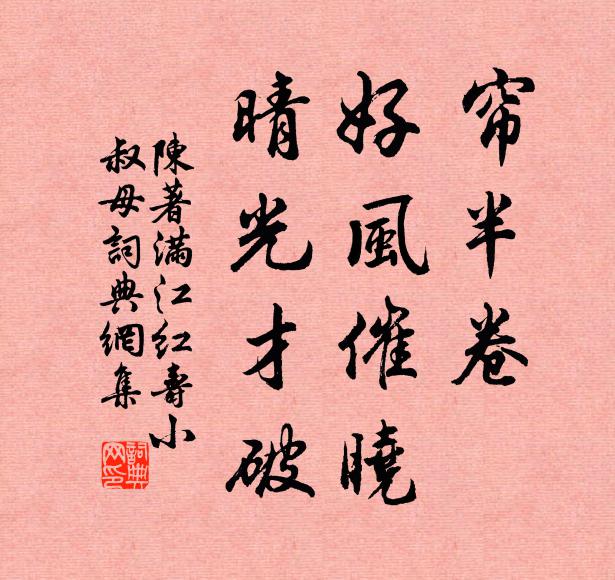 帘半卷
好風催曉
晴光才破
陳著滿江红壽小
叔母詞典網集
詞典
网印